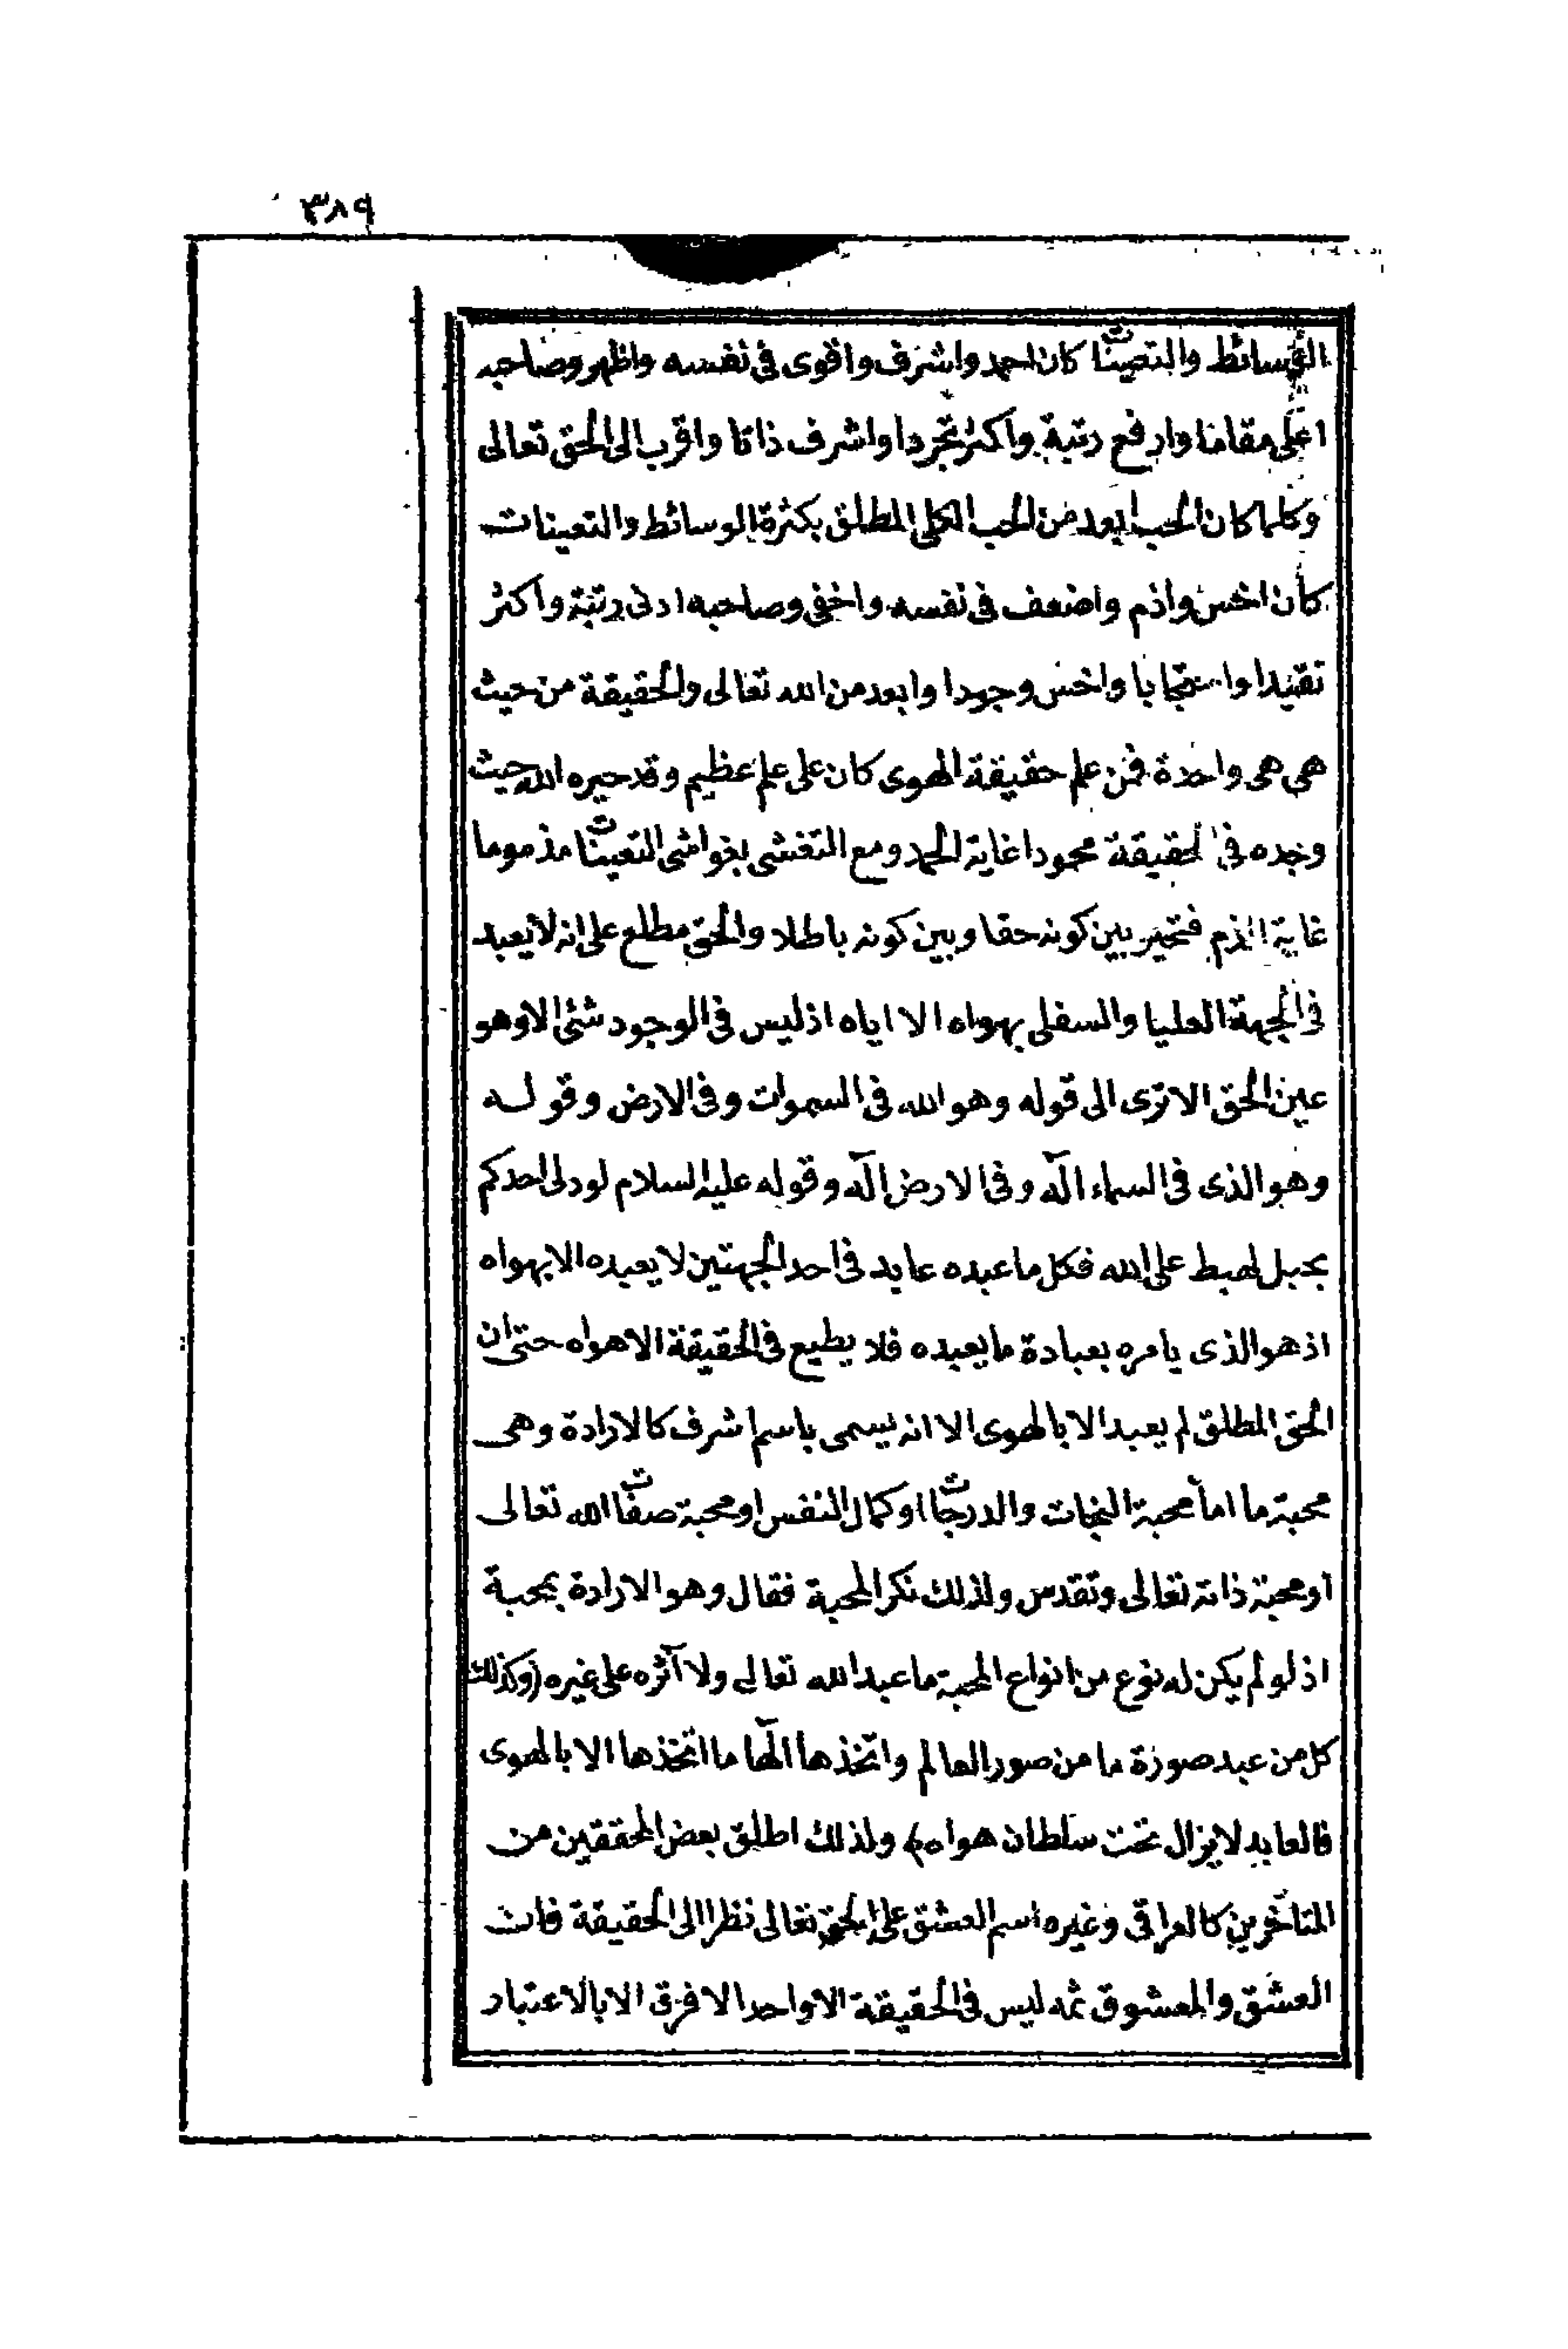 ٣٨٩
الوسائط والتعينات كان احمد واشرف واقوى فى نفسه واظهر وصاحبه
اعلى مقاما وارفع رتبة واكثر تجردا واشرف ذاتا واقرب الى الحق تعالى
وكلما كان الحب ابعد من الحب الكلى المطلق بكثرة الوسائط والتعينات
كان اخس واذم واضعف فى نفسه واخفى وصاحبه ادنى رتبة واكثر
تقيدا واحتجابا واخس وجودا وابعد من الله تعالى والحقيقة من حيث
هى هى واحدة فمن علم حقيقة الهوى كان على علم عظيم وقد حيره الله حيث
وجده فى الحقيقة محمودا غاية الحمد ومع التغشى بغواشى التعينات مذموما
غاية الذم فتحير بين كونه حقا وبين كونه باطلا والحق مطلع على انه لا يعبد
فى الجهة العليا والسفلى بهواه الا اياه اذ ليس فى الوجود شئ الا وهو
عين الحق الا ترى الى قوله وهو الله فى السموات وفى الارض وقوله
وهو الذى فى السماء اله وفى الارض اله وقوله عليه السلام لو دلى احدكم
بحبل لهبط على الله فكل ما عبده عابد فى احد الجهتين لا يعبده الا بهواه
اذ هو الذى يامره بعبادة ما يعبده فلا يطيع فى الحقيقة الا هواه حتى ان
الحق المطلق لم يعبد الا بالهوى الا انه يسمى باسم اشرف كالارادة وهى
محبة ما اما محبة النجات والدرجات او كمال النفس او محبة صفات الله تعالى
او محبة ذاته تعالى وتقدس ولذلك نكر المحبة فقال وهو الارادة بمحبة
اذ لو لم يكن له نوع من انواع المحبة ما عبد الله تعالى ولا آثره على غيره (وكذلك
كل من عبد صورة ما من صور العالم واتخذها الٓها ما اتخذها الا بالهوى
فالعابد لا يزال تحت سلطان هواه) ولذلك اطلق بعض المحققين من
المتاخرين كالعراقى وغيره اسم العشق على الحق تعالى نظرا الى الحقيقة فان
العشق والمعشوق ثمه ليس فى الحقيقة الا واحدا لا فرق الا بالاعتبار